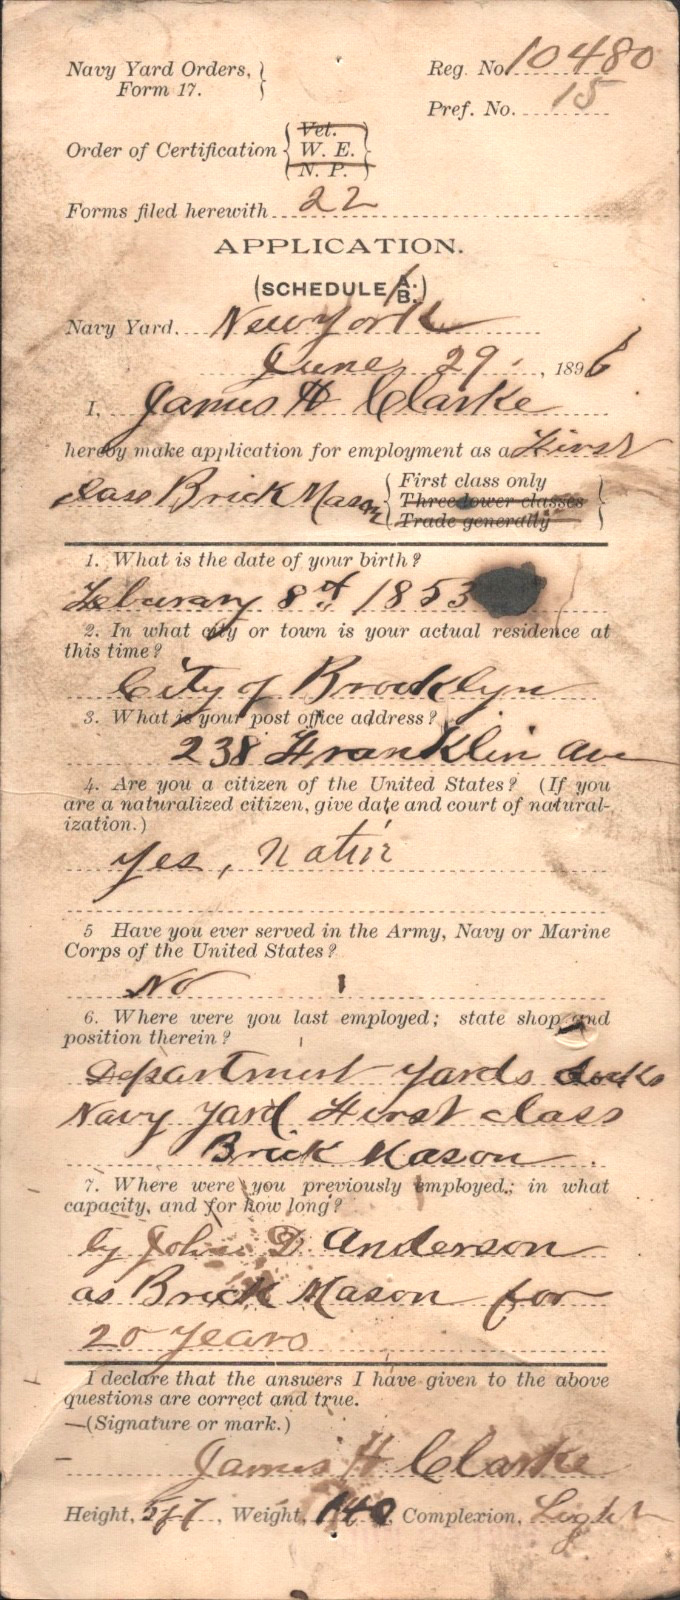 Navy Yard Orders, Form 17.
Reg. No. 10480
Pref. No. 15
Order of Certification { Vet. W. E. N. P. }
Forms filed herewith 22
APPLICATION.
(SCHEDULE A. B.)
Navy Yard, New York
June 29, 1896
I, James H Clarke
hereby make application for employment as a First
class Brick Mason { First class only
Three lower classes
Trade generally }
1. What is the date of your birth?
Feburary 8th 1853
2. In what city or town is your actual residence at
this time?
City of Brooklyn
3. What is your post office address?
238 Franklin Ave
4. Are you a citizen of the United States? (If you
are a naturalized citizen, give date and court of natural-
ization.)
yes, Nativ
5 Have you ever served in the Army, Navy or Marine
Corps of the United States?
No
6. Where were you last employed; state shop and
position therein?
Department Yards docks
Navy Yard First class
Brick Mason.
7. Where were you previously employed; in what
capacity, and for how long?
by John D Anderson
as Brick Mason for
20 years
I declare that the answers I have given to the above
questions are correct and true.
(Signature or mark.)
James H Clarke
Height, 5f7, Weight, 140, Complexion, Light